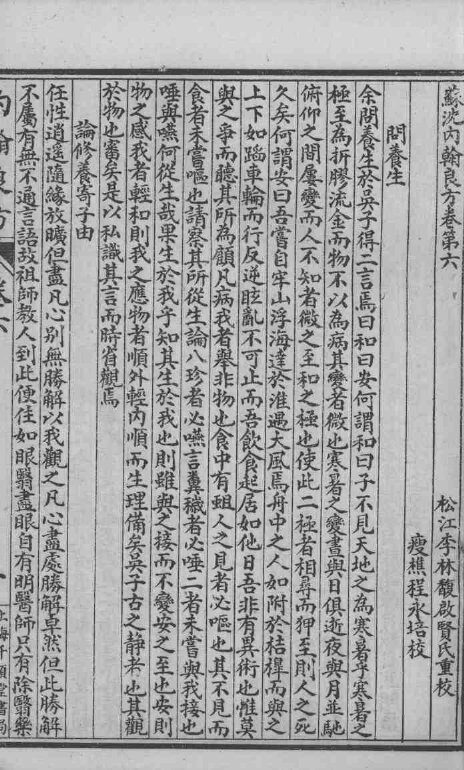 蘇沈內翰良方卷第六
松江李林馥啟賢氏重校
瘦樵程永培校
問養生
余問養生於吳子得二言焉曰和曰安何謂和曰子不見天地之為寒暑乎寒暑之
極至為折膠流金而物不以為病其變者微也寒暑之變晝與日俱逝夜與月並馳
俯仰之間屢變而人不知者微之至和之極也使此二極者相尋而狎至則人之死
久矣何謂安曰吾嘗自牢山浮海達於淮遇大風焉舟中之人如附於桔槔而與之
上下如蹈車輪而行反逆眩亂不可止而吾飲食起居如他日吾非有異術也惟莫
與之爭而聽其所為顧凡病我者舉非物也食中有蛆人之見者必嘔也其不見而
食者未嘗嘔也請察其所從生論八珍者必嚥言糞穢者必唾二者未嘗與我接也
唾與嚥何從生哉果生於我乎知其生於我也則雖與之接而不變安之至也安則
物之感我者輕和則我之應物者順外輕內順而生理備矣吳子古之靜者也其觀
於物也審矣是以私識其言而時省觀焉
論修養寄子由
任性逍遙隨緣放曠但盡凡心別無勝解以我觀之凡心盡處勝解卓然但此勝解
不屬有無不通言語故祖師教人到此便住如眼翳盡眼自有明醫師只有除翳藥